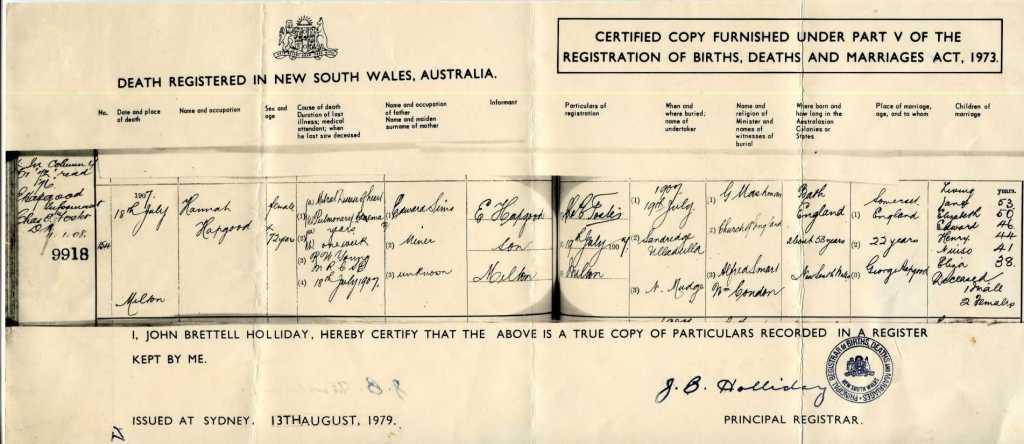 DEATH REGISTERED IN NEW SOUTH WALES, AUSTRALIA.
CERTIFIED COPY FURNISHED UNDER PART V OF THE
REGISTRATION OF BIRTHS, DEATHS AND MARRIAGES ACT, 1973.
No.
Date and place
of death
Name and occupation
Sex and
age
Cause of death
Duration of last
illness; medical
attendant; when
he last saw deceased
Name and occupation
of father
Name and maiden
surname of mother
Informant
Particulars of
registration
When and
where buried;
name of
undertaker
Name and
religion of
Minister and
names of
witnesses of
burial
Where born and
how long in the
Australasian
Colonies or
States
Place of marriage,
age, and to whom
Children of
marriage
Column
read
E Hapgood
Informant
Chas E Foster
D.R.
1.08.
9918
1907.
18th July
Milton
Hannah
Hapgood
female
72 years
(1)
Pulmonary
years
one week
(2)
(3)
R W Young
M R C S E
(4)
18th July 1907.
(1)
Edward Sims
(2)
Miner
(3)
unknown
E Hapgood
son
Milton
C E Foster
July 1907.
Milton
1907
(1)
19th July
(2)
Sandridge
Ulladulla
(3)
A. Mudge
(1)
G Mashman
(2)
Church of England
(3)
Alfred Smart
Wm Condon
Bath
England
about 53 years
New South Wales
Somerset
(1)
England
(2)
22 years
(3)
George Hapgood
Living years.
Jane 53
Elizabeth 50
Edward 46
Henry 44
41
Eliza 38.
Deceased
1 male
2 females
I, JOHN BRETTELL HOLLIDAY, HEREBY CERTIFY THAT THE ABOVE IS A TRUE COPY OF PARTICULARS RECORDED IN A REGISTER
KEPT BY ME.
J. B. Holliday
PRINCIPAL REGISTRAR OF BIRTHS, DEATHS AND MARRIAGES
NEW SOUTH WALES
ISSUED AT SYDNEY, 13THAUGUST, 1979.
PRINCIPAL REGISTRAR.